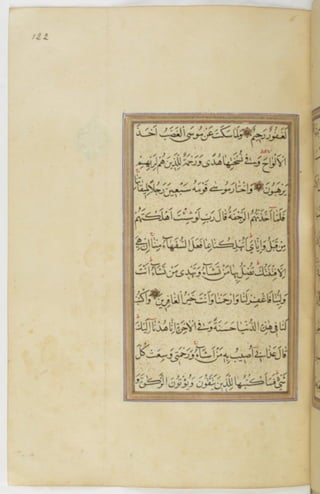 122
لَغَفُورٌ رَحِيمٌ وَلَمَّا سَكَتَ عَنْ مُوسَى الْغَضَبُ أَخَذَ
الْأَلْوَاحَ وَفِي نُسْخَتِهَا هُدًى وَرَحْمَةٌ لِلَّذِينَ هُمْ لِرَبِّهِمْ
يَرْهَبُونَ وَاخْتَارَ مُوسَى قَوْمَهُ سَبْعِينَ رَجُلًا لِمِيقَاتِنَا
فَلَمَّا أَخَذَتْهُمُ الرَّجْفَةُ قَالَ رَبِّ لَوْ شِئْتَ أَهْلَكْتَهُمْ
مِنْ قَبْلُ وَإِيَّايَ أَتُهْلِكُنَا بِمَا فَعَلَ السُّفَهَاءُ مِنَّا إِنْ هِيَ
إِلَّا فِتْنَتُكَ تُضِلُّ بِهَا مَنْ تَشَاءُ وَتَهْدِي مَنْ تَشَاءُ أَنْتَ
وَلِيُّنَا فَاغْفِرْ لَنَا وَارْحَمْنَا وَأَنْتَ خَيْرُ الْغَافِرِينَ وَاكْتُبْ
لَنَا فِي هَذِهِ الدُّنْيَا حَسَنَةً وَفِي الْآخِرَةِ إِنَّا هُدْنَا إِلَيْكَ
قَالَ عَذَابِي أُصِيبُ بِهِ مَنْ أَشَاءُ وَرَحْمَتِي وَسِعَتْ كُلَّ
شَيْءٍ فَسَأَكْتُبُهَا لِلَّذِينَ يَتَّقُونَ وَيُؤْتُونَ الزَّكَوةَ وَ